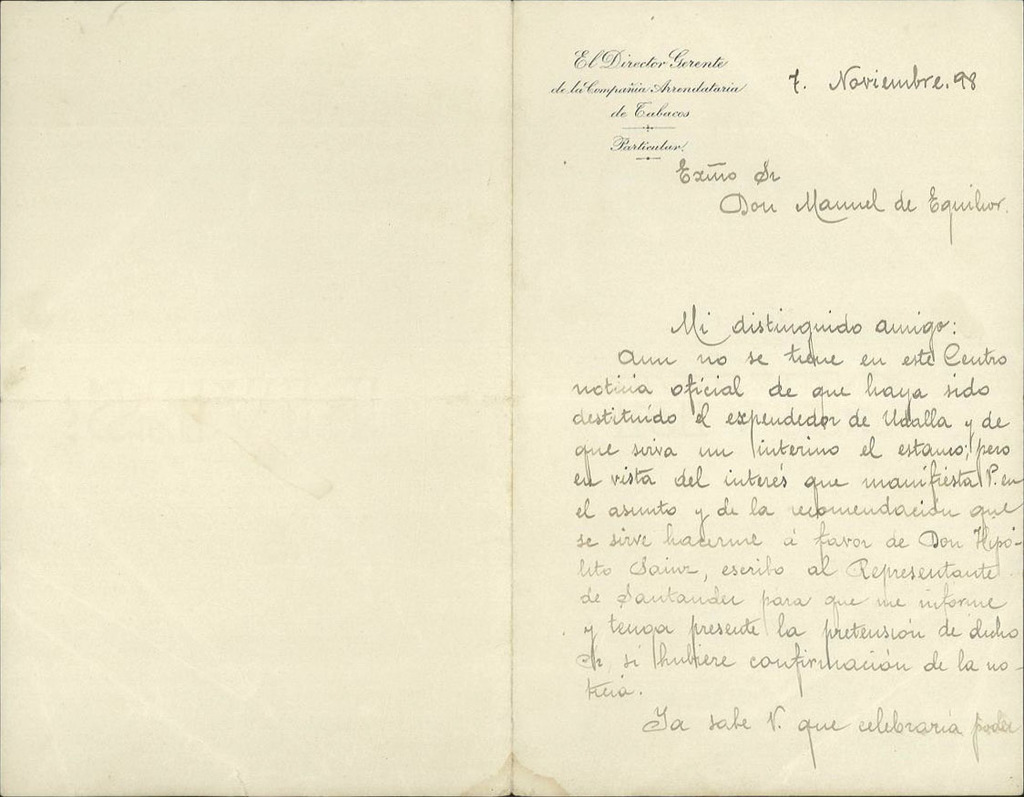 El Director Gerente
de la Compañia Arrendataria
de Tabacos
Particular.
7. Noviembre. 98
Exmo Sr
Don Manuel de Eguilior.
Mi distinguido amigo:
Aun no se tiene en este Centro
noticia oficial de que haya sido
destituído el expendedor de Udalla y de
que sirva un interino el estanco; pero
en vista del interés que manifiesta V. en
el asunto y de la recomendación que
se sirve hacerme á favor de Don Hipó-
lito Sainz, escribo al Representante
de Santander para que me informe
y tenga presente la pretensión de dicho
Sr si hubiere confirmación de la no-
ticia.
Ya sabe V. que celebraría poder